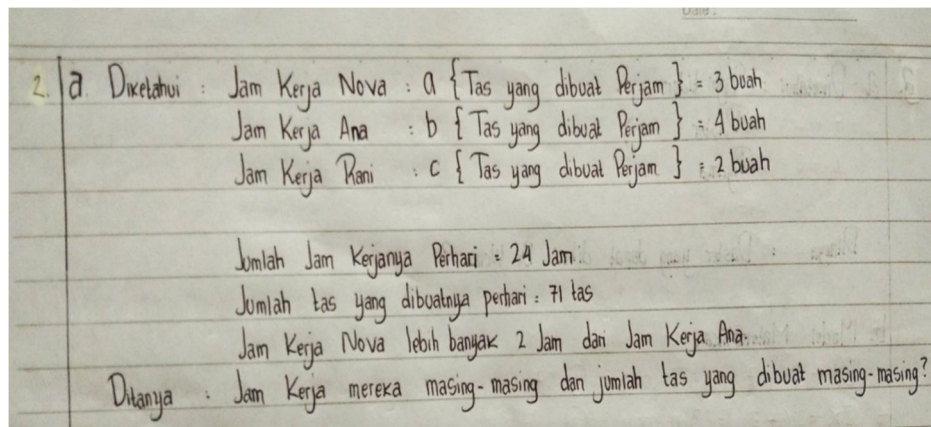 Date :
2. a. Diketahui : Jam Kerja Nova : a { Tas yang dibuat Perjam } = 3 buah
Jam Kerja Ana : b { Tas yang dibuat Perjam } = 4 buah
Jam Kerja Rani : c { Tas yang dibuat Perjam } = 2 buah
Jumlah Jam Kerjanya Perhari = 24 Jam
Jumlah tas yang dibuatnya perhari = 71 tas
Jam Kerja Nova lebih banyak 2 Jam dari Jam Kerja Ana.
Ditanya : Jam Kerja mereka masing-masing dan jumlah tas yang dibuat masing-masing?